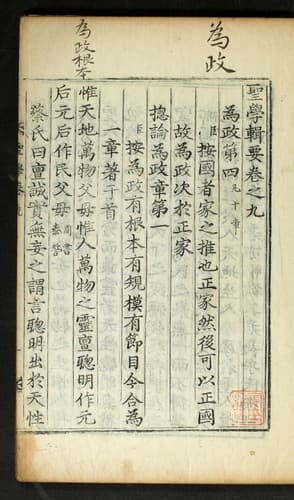 為政
為政根本
聖學輯要卷之九
為政第四 凡十章
臣按國者家之推也正家然後可以正國
故為政次於正家
摠論為政章第一
臣按為政有根本有規模有節目今合為
一章著于首
惟天地萬物父母惟人萬物之靈亶聰明作元
后元后作民父母 周書泰誓
蔡氏曰亶誠實無妄之謂言聰明出於天性